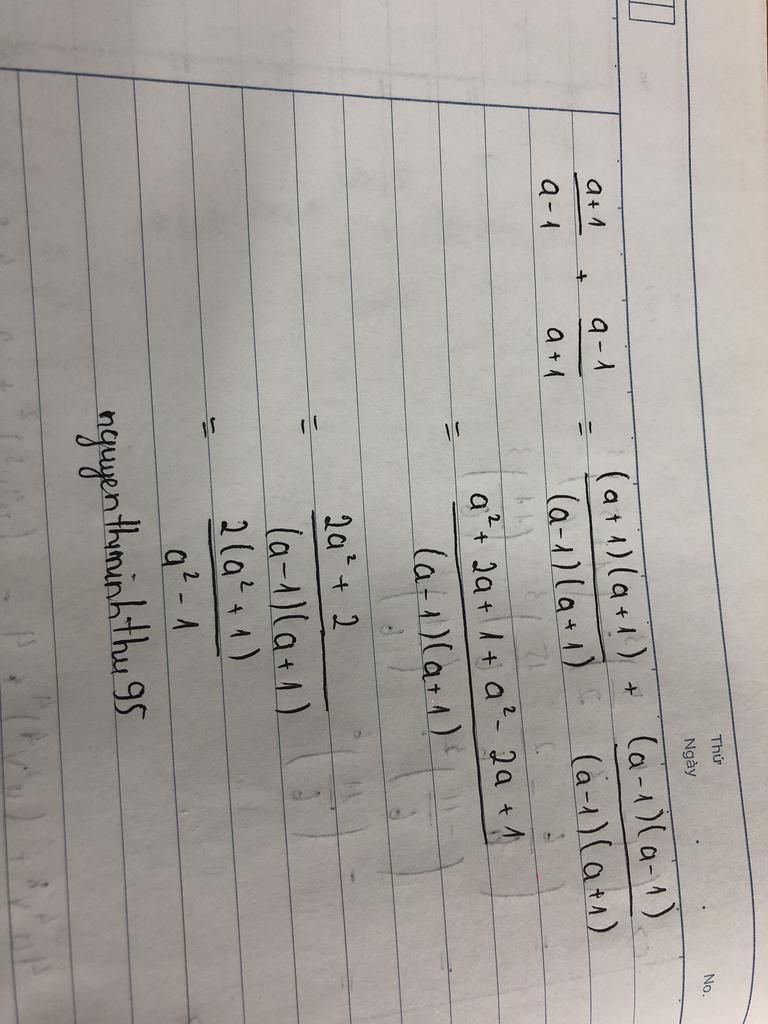 Thứ
Ngày
No.
(a+1)/(a-1) + (a-1)/(a+1) = (a+1)(a+1)/(a-1)(a+1) + (a-1)(a-1)/(a-1)(a+1)
= (a² + 2a + 1 + a² - 2a + 1)/(a-1)(a+1)
= (2a² + 2)/(a-1)(a+1)
= 2(a² + 1)/(a² - 1)
nguyenthyminhthu95